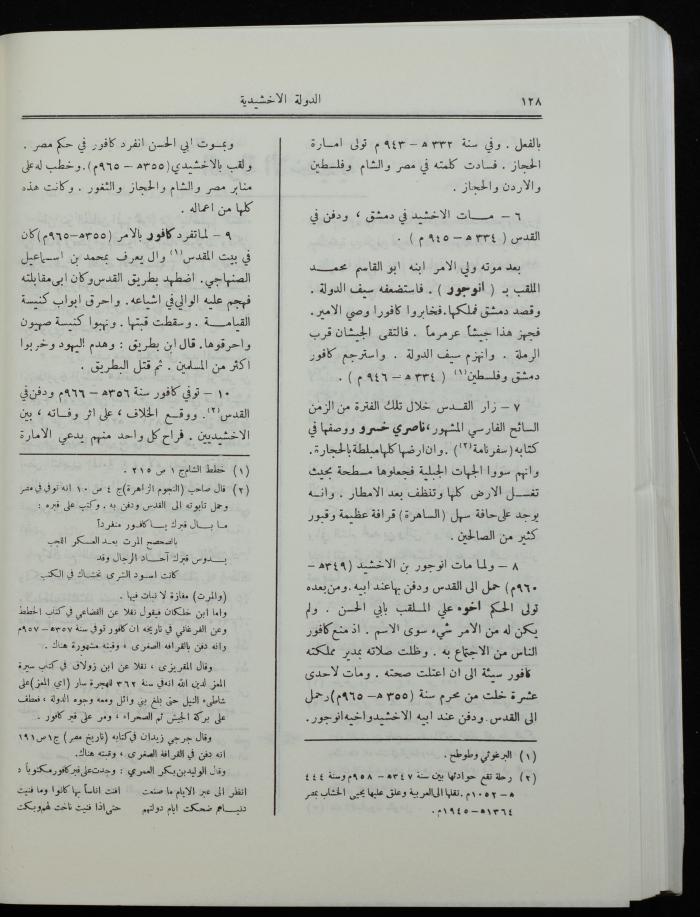 ١٢٨
الدولة الاخشيدية
بالفعل . وفي سنة ٣٣٢ ه – ٩٤٣ م تولى امارة
الحجاز . فسادت كلمته في مصر والشام وفلسطين
والاردن والحجاز .
٦ – مات الاخشيد في دمشق ، ودفن في
القدس ( ٣٣٤ ه – ٩٤٥ م ) .
بعد موته ولي الامر ابنه ابو القاسم محمد
الملقب بـ ( انوجور ) . فاستضعفه سيف الدولة .
وقصد دمشق فملكها.فخابروا كافورا وصي الامير.
فجهز هذا جيشاً عرمرماً . فالتقى الجيشان قرب
الرملة . وانهزم سيف الدولة . واسترجع كافور
دمشق وفلسطين(١) ( ٣٣٤ ه – ٩٤٦ م ) .
٧ – زار القدس خلال تلك الفترة من الزمن
السائح الفارسي المشهور،ناصري خسرو ووصفها في
كتابه (سفرنامة(٢)) .وان ارضها كلها مبلطة بالحجارة.
وانهم سووا الجهات الجبلية فجعلوها مسطحة بحيث
تغسل الارض كلها وتنظف بعد الامطار . وانه
يوجد على حافة سهل (الساهرة) قرافة عظيمة وقبور
كثير من الصالحين .
٨ – ولما مات انوجور بن الاخشيد (٣٤٩ه –
٩٦٠م) حمل الى القدس ودفن بها عند ابيه .ومن بعده
تولى الحكم اخوه علي الملقب بابي الحسن . ولم
يكن له من الامر شيء سوى الاسم . اذ منع كافور
الناس من الاجتماع به . وظلت صلاته بمدير مملكته
كافور سيئة الى ان اعتلت صحته . ومات لاحدى
عشرة خلت من محرم سنة (٣٥٥ ه – ٩٦٥م) وحمل
الى القدس.ودفن عند ابيه الاخشيد واخيه انوجور.
(١) البرغوثي وطوطح .
(٢) رحلة تقع حوادثها بين سنة ٣٤٧ه – ٩٥٨م وسنة ٤٤٤
ه – ١٠٥٢م .نقلها الى العربية وعلق عليها يحيى الخشاب بمصر
١٣٦٤ه – ١٩٤٥م .
وبموت ابي الحسن انفرد كافور في حكم مصر .
ولقب بالاخشيدي (٣٥٥ه – ٩٦٥م).وخطب له على
منابر مصر والشام والحجاز والثغور . وكانت هذه
كلها من اعماله .
٩ – لما تفرد كافور بالامر (٣٥٥ه – ٩٦٥م) كان
في بيت المقدس(١) وال يعرف بمحمد بن اسماعيل
الصنهاجي. اضطهد بطريق القدس وكان ابى مقابلته
فهجم عليه الوالي في اشياعه . واحرق ابواب كنيسة
القيامة . وسقطت قبتها . ونهبوا كنيسة صهيون
واحرقوها. قال ابن بطريق : وهدم اليهود وخربوا
اكثر من المسلمين . ثم قتل البطريق .
١٠ – توفي كافور سنة ٣٥٦ه – ٩٦٦م ودفن في
القدس(٢). ووقع الخلاف ، على اثر وفاته ، بين
الاخشيديين . فراح كل واحد منهم يدعي الامارة
(١) خطط الشام ج ١ ص ٢١٥ .
(٢) قال صاحب (النجوم الزاهرة) ج ٤ ص ١٠ انه توفي في مصر
وحمل تابوته الى القدس ودفن به . وكتب على قبره :
ما بال قبرك يا كافور منفرداً
بالصحصح المرت بعد العسكر اللجب
يدوس قبرك آحاد الرجال وقد
كانت اسود الشرى تخشاك في الكتب
(والمرت) مفازة لا نبات فيها .
واما ابن خلكان فيقول نقلا عن القضاعي في كتاب الخطط
وعن الفرغاني في تاريخه ان كافور توفي سنة ٣٥٧ه – ٩٥٧م
وانه دفن بالقرافه الصغرى ، وقبته مشهورة هناك .
وقال المقريزى ، نقلا عن ابن زولاق في كتاب سيرة
المعز لدين الله انه في سنة ٣٦٢ للهجرة سار (اي المعز) على
شاطىء النيل حتى بلغ بني وائل ومعه وجوه الدولة ، فعطف
على بركة الجيش ثم الصحراء ، ومر على قبر كافور .
وقال جرجي زيدان في كتابه (تاريخ مصر) ج١ ص١٩١
انه دفن في القرافة الصغرى ، وقبته هناك.
وقال الوليد بن بكر العمري : وجدت على قبر كافور مكتوباً :
انظر الى عبر الايام ما صنعت   افنت اناساً بها كانوا وما فنيت
دنياهم ضحكت ايام دولتهم   حتى اذا فنيت ناحت لهم وبكت